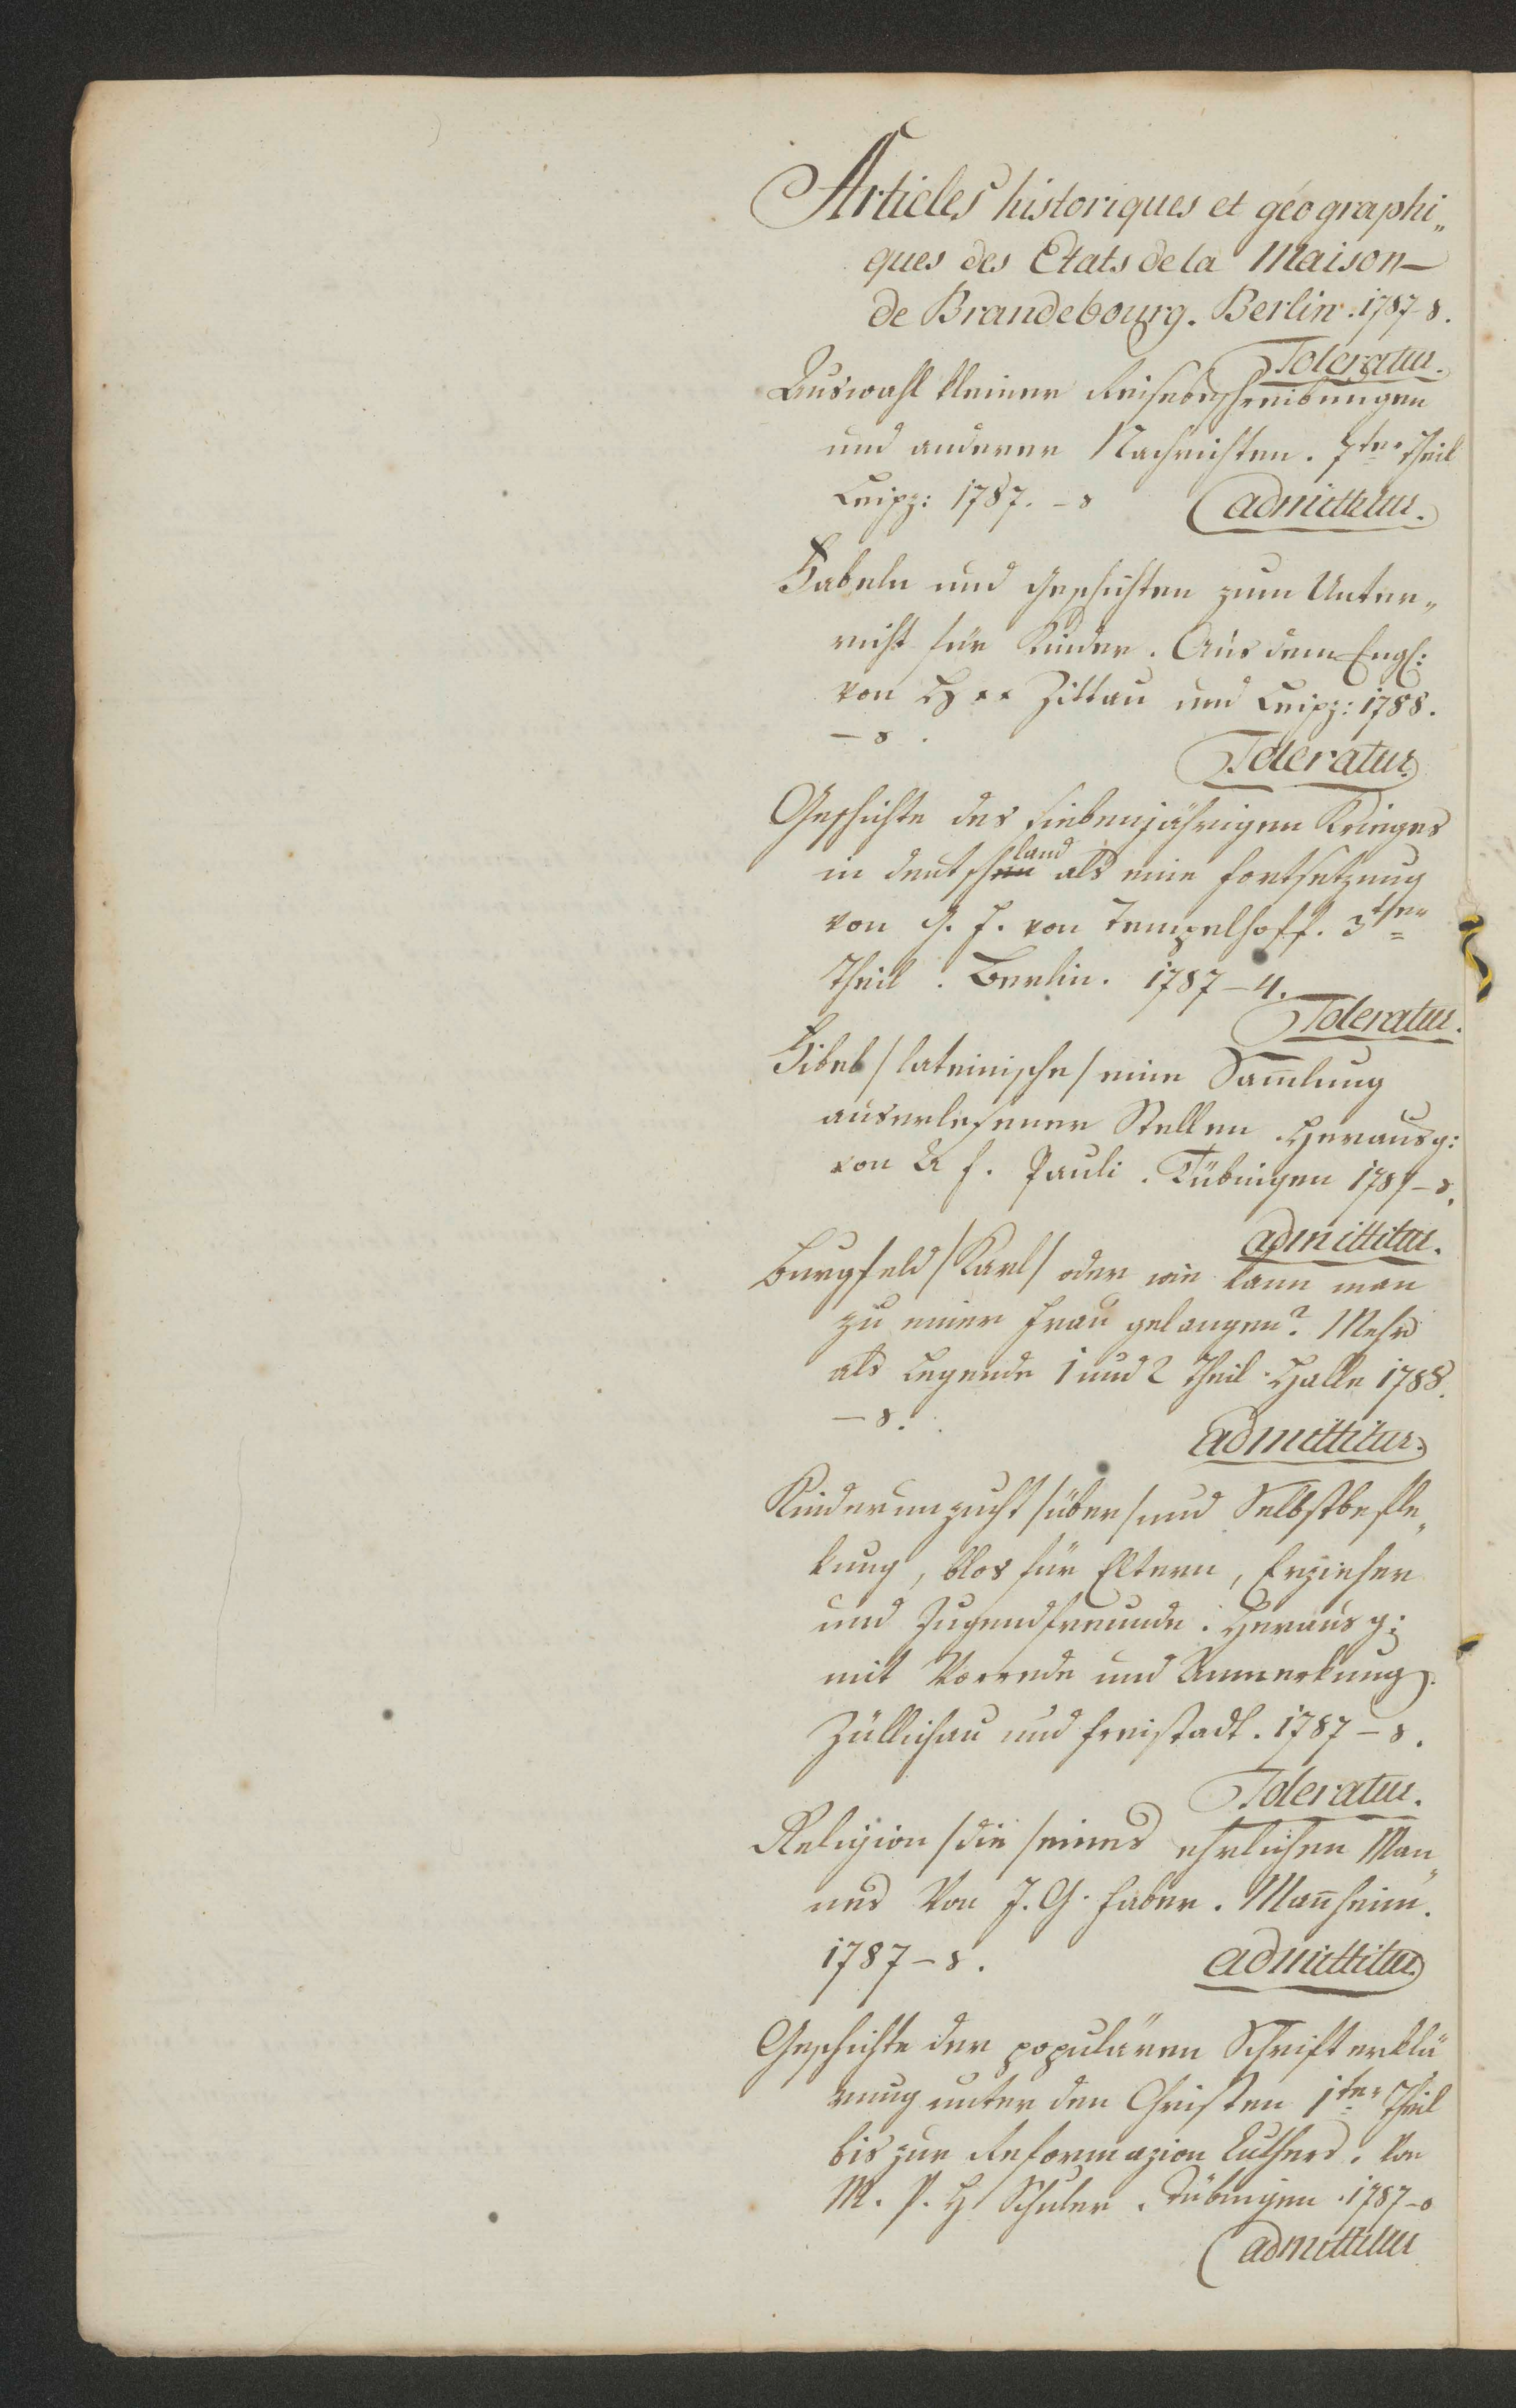 Articles historiques et géographi„
ques des Etats de la Maison
de Brandebourg. Berlin. 1787 8.
Toleratur.
Auswahl kleiner Reisebeschreibungen
und anderer Nachrichten. 7ter Theil
Leipz: 1787. – 8
admittitur.
Fabeln und Geschichten zum Unter„
richt für Kinder. Aus dem Engl:
von H ** Zittau und Leipz: 1788.
– 8.
Toleratur.
Geschichte des siebenjährigen Krieges
in deutschland als eine Fortsetzung
von G. F. von Tempelhoff. 3ter
Theil. Berlin. 1787 – 4.
Toleratur.
Fibel / lateinische / eine Sam̄lung
auserlesener Stellen. Herausg:
von A f. Pauli. Tübingen 1787 – 8.
admittitur.
Burgfeld / Karl / oder wie kann man
zu einer Frau gelangen? Mehr
als Legende 1 und 2 Theil. Halle 1788.
– 8.
admittitur.
Kinderunzucht / über / und Selbstbefle„
kung, blos für Eltern, Erzieher
und Jugendfreunde. Herausg:
mit Vorrede und Anmerkung.
Züllichau und Freistadt. 1787 – 8.
Toleratur.
Religion / die / eines ehrlichen Man„
nes Von J. G. Faber. Man̄heim.
1787 – 8.
admittitur.
Geschichte der populären Schrifterklä
rung unter den Christen 1ter Theil
bis zur Reformazion Luthers. Von
M. P. H Schuler. Tübingen. 1787 – 8
admittitur